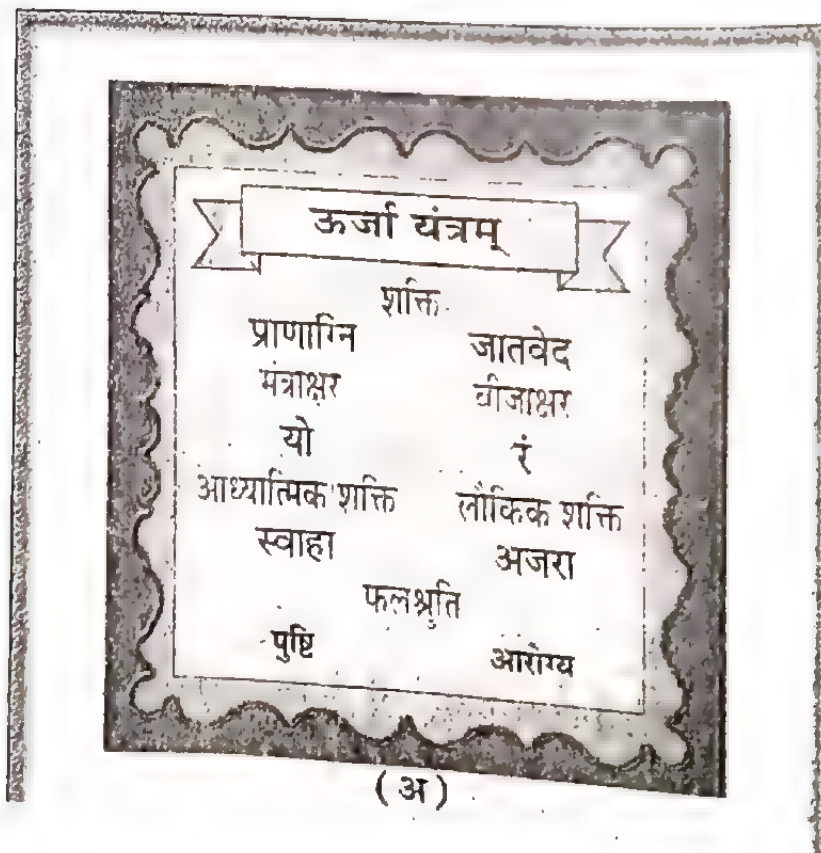 ऊर्जा यंत्रम्
शक्ति
प्राणाग्नि जातवेद
मंत्राक्षर बीजाक्षर
यो रं
आध्यात्मिक शक्ति लौकिक शक्ति
स्वाहा अजरा
फलश्रुति
पुष्टि आरोग्य
(अ)